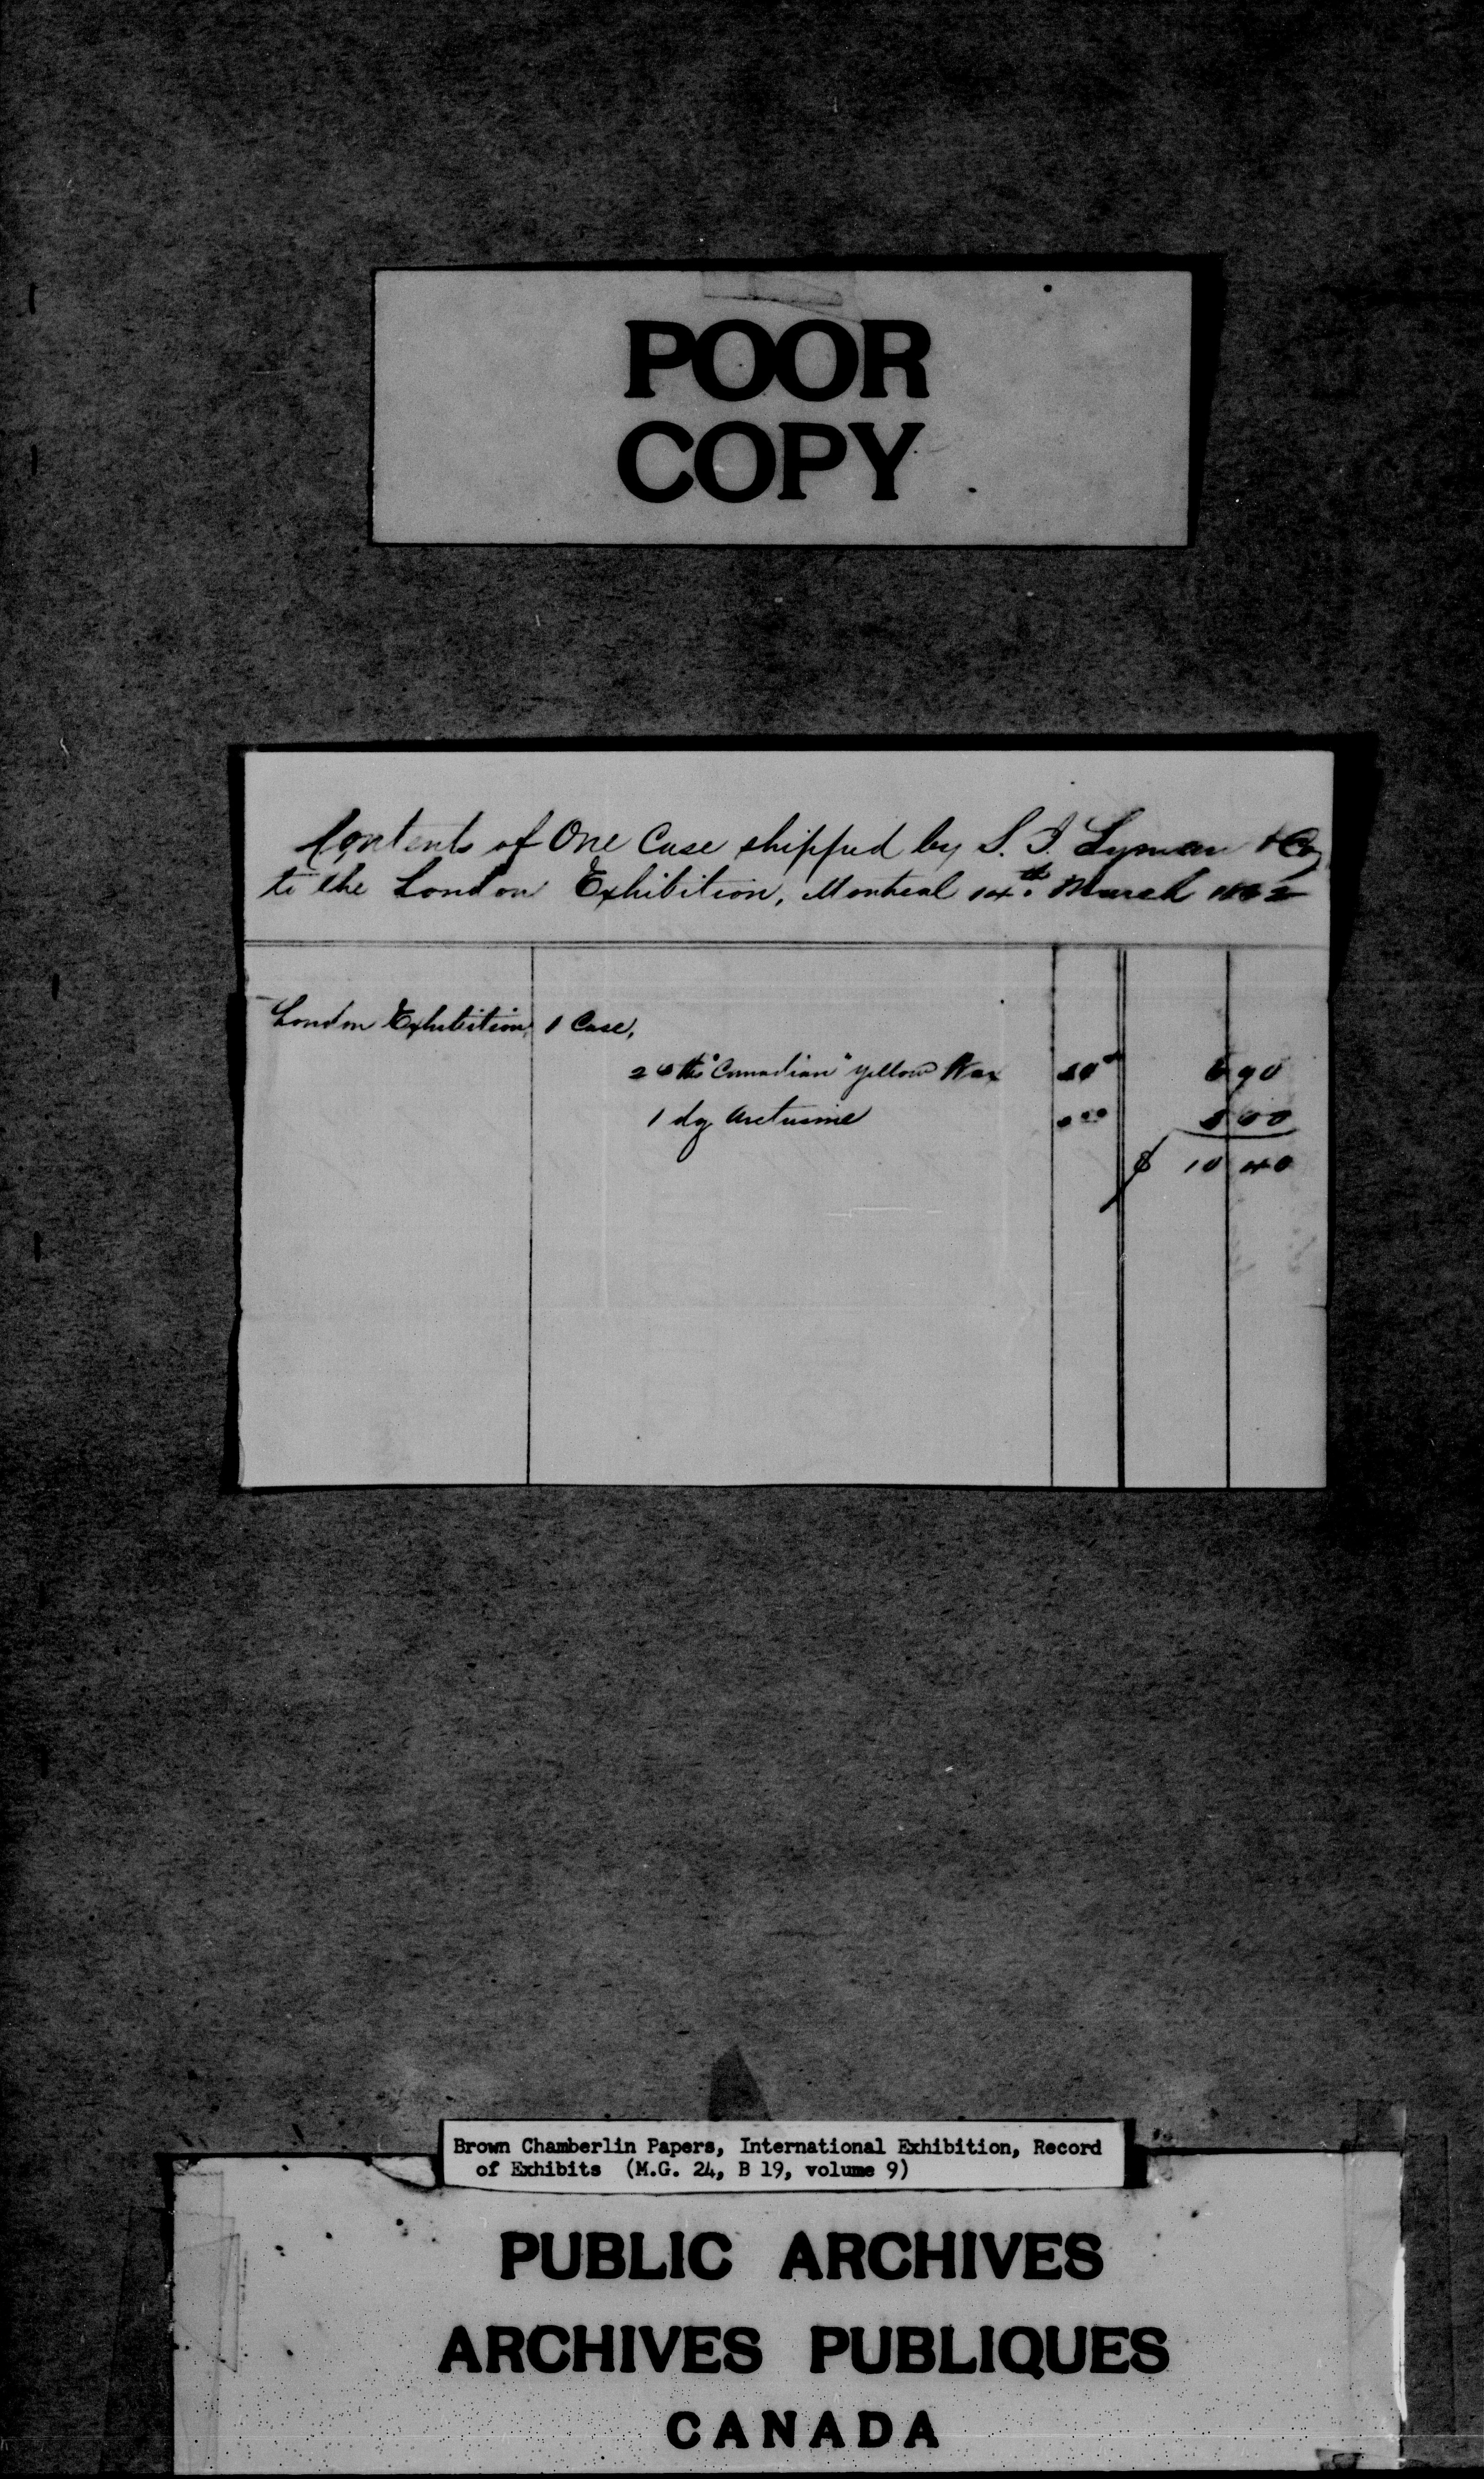 POOR
COPY
Contents of One Case shipped by S. J. Lyman & Co
to the London Exhibition, Montreal 14th March 1862
London Exhibition, 1 Case,
lbs "Canadian" Yellow Wax 90
1 dz 00
$ 10 40
Brown Chamberlin Papers, International Exhibition, Record
of Exhibits (M.G. 24, B 19, volume 9)
PUBLIC ARCHIVES
ARCHIVES PUBLIQUES
CANADA